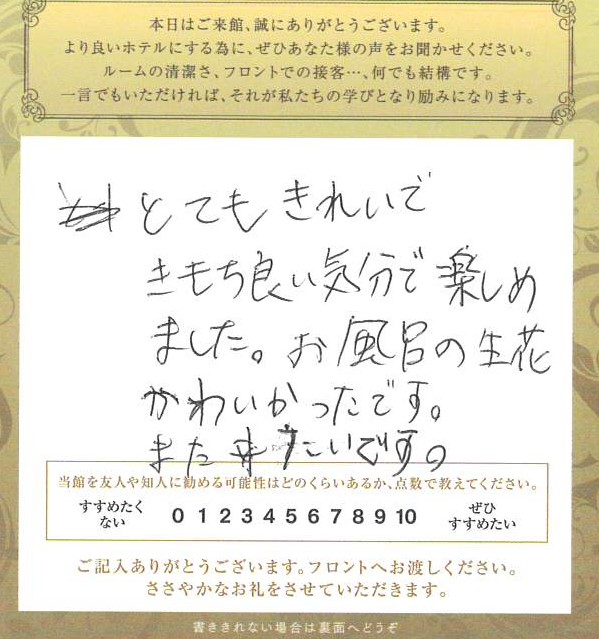 本日はご来館、誠にありがとうございます。
より良いホテルにする為に、ぜひあなた様の声をお聞かせください。
ルームの清潔さ、フロントでの接客…、何でも結構です。
一言でもいただければ、それが私たちの学びとなり励みになります。
とてもきれいで
きもち良い気分で楽しめ
ました。お風呂の生花
かわいかったです。
また来たいです。
当館を友人や知人に勧める可能性はどのくらいあるか、点数で教えてください。
すすめたくない 0 1 2 3 4 5 6 7 8 9 10 ぜひすすめたい
ご記入ありがとうございます。フロントへお渡しください。
ささやかなお礼をさせていただきます。
書ききれない場合は裏面へどうぞ